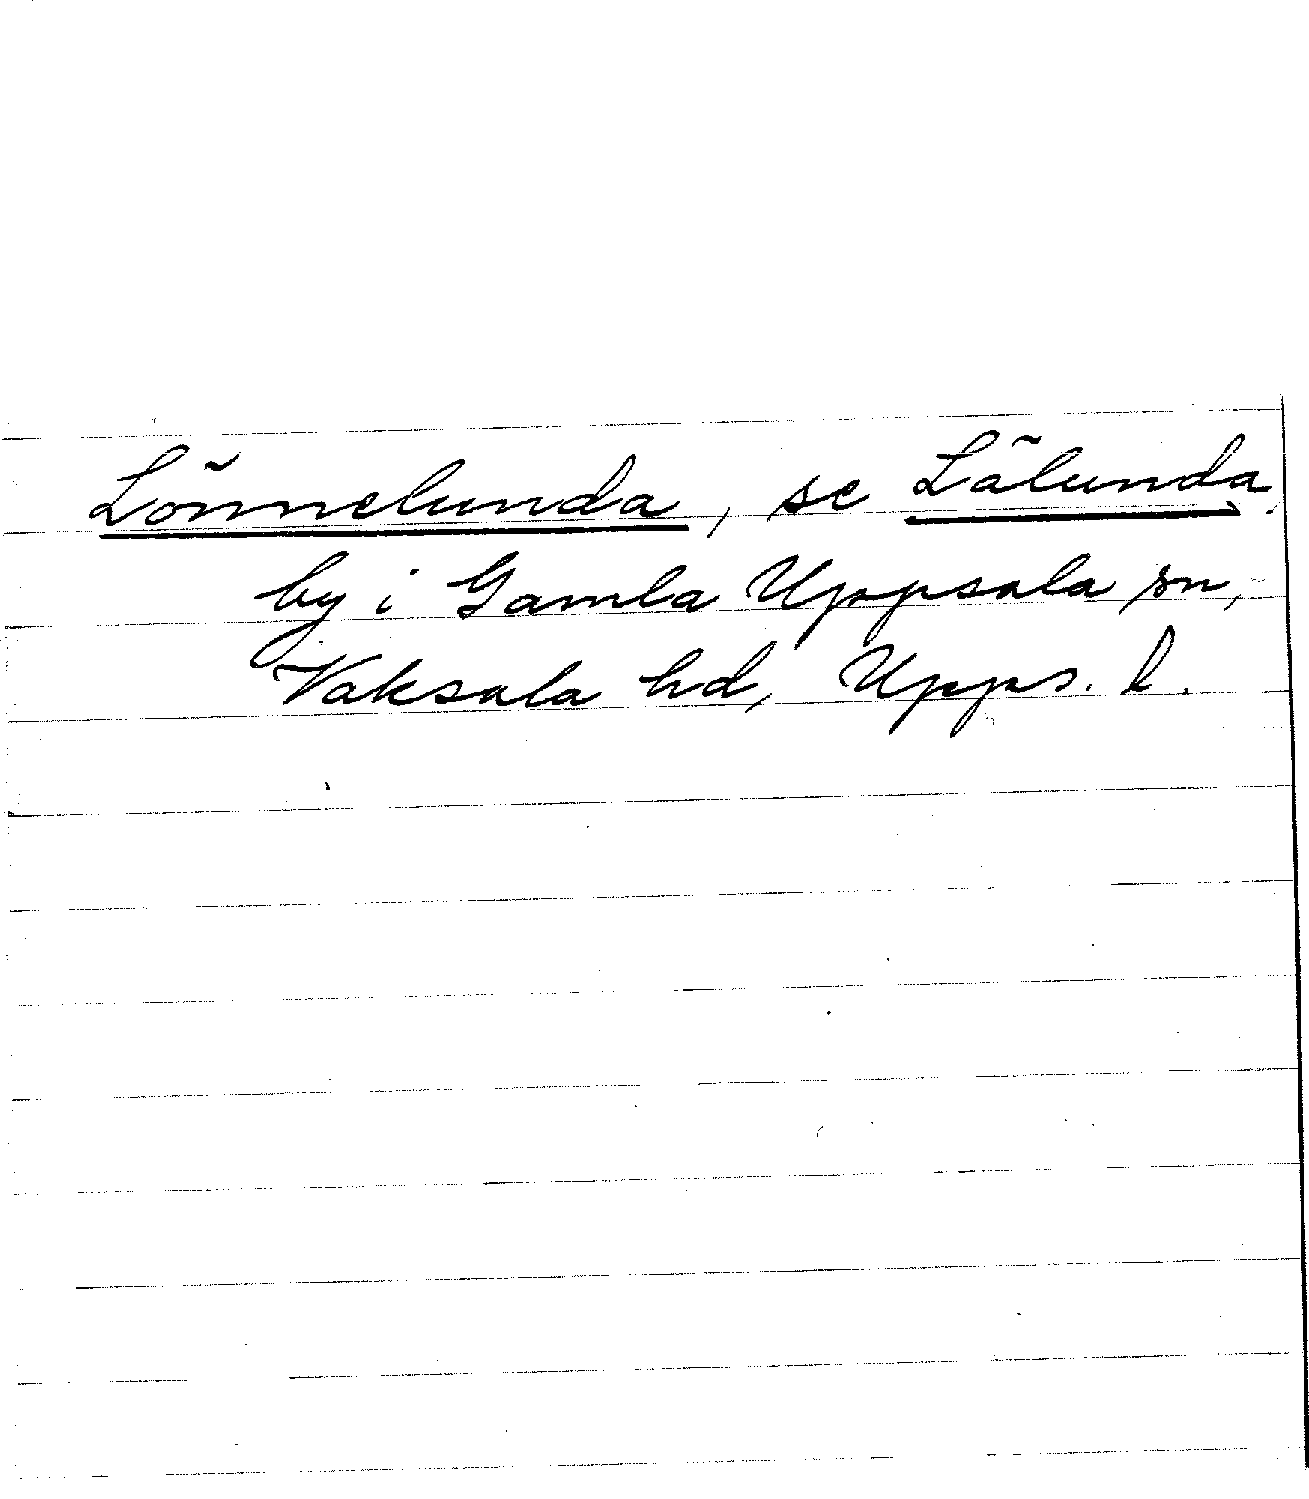 Lönnelunda, se Lälunda.
by i Gamla Uppsala sn,
Vaksala hd, Upps. l.